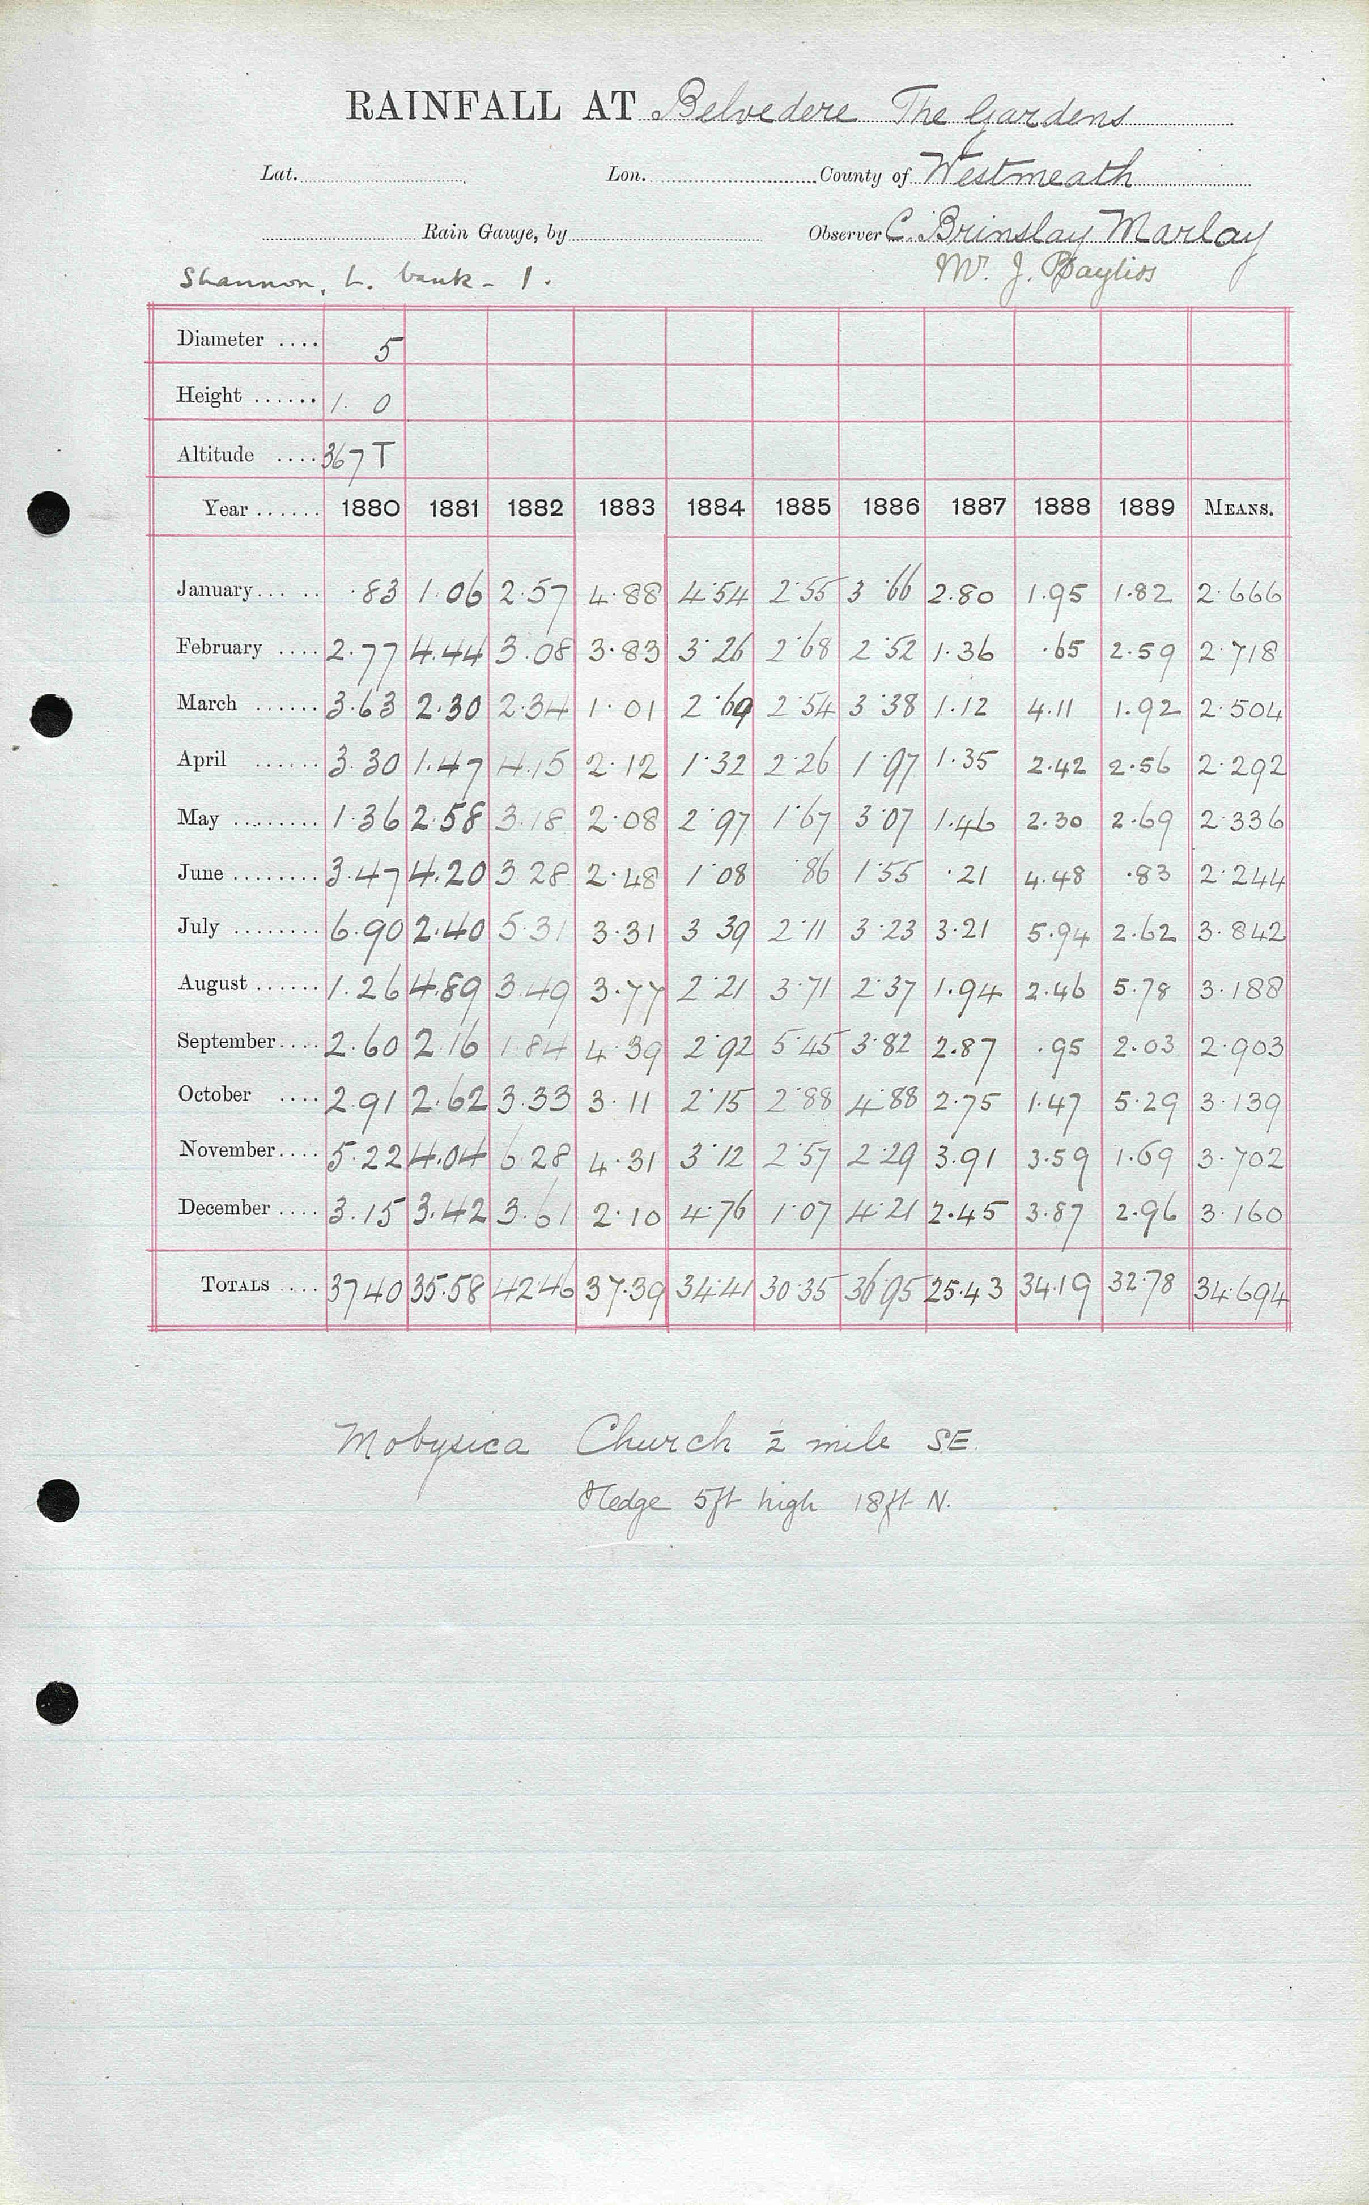 RAINFALL AT Belvedere The Gardens
Lat. Lon. County of Westmeath
Rain Gauge, by Observer C. Brinslay Marlay
Shannon, L. bank - 1. Mr. J.
Diameter .... 5
Height ...... 1. 0
Altitude .... 367 T
Year ...... 1880 1881 1882 1883 1884 1885 1886 1887 1888 1889 MEANS.
January... .. .83 1.06 2.57 4.88 4.54 2.55 3.66 2.80 1.95 1.82 2.666
February .... 2.77 4.44 3.08 3.83 3.26 2.68 2.52 1.36 .65 2.59 2.718
March ...... 3.63 2.30 2.34 1.01 2.69 2.54 3.38 1.12 4.11 1.92 2.504
April ...... 3.30 1.47 4.15 2.12 1.32 2.26 1.97 1.35 2.42 2.56 2.292
May ........ 1.36 2.58 3.18 2.08 2.97 1.67 3.07 1.46 2.30 2.69 2.336
June ........ 3.47 4.20 3.28 2.48 1.08 .86 1.55 .21 4.48 .83 2.244
July ........ 6.90 2.40 5.31 3.31 3.39 2.11 3.23 3.21 5.94 2.62 3.842
August ...... 1.26 4.89 3.49 3.77 2.21 3.71 2.37 1.94 2.46 5.78 3.188
September.... 2.60 2.16 1.84 4.39 2.92 5.45 3.82 2.87 .95 2.03 2.903
October .... 2.91 2.62 3.33 3.11 2.15 2.88 4.88 2.75 1.47 5.29 3.139
November.... 5.22 4.04 6.28 4.31 3.12 2.57 2.29 3.91 3.59 1.69 3.702
December .... 3.15 3.42 3.61 2.10 4.76 1.07 4.21 2.45 3.87 2.96 3.160
TOTALS .... 37.40 35.58 42.46 37.39 34.41 30.35 36.95 25.43 34.19 32.78 34.694
Church ½ mile SE.
Hedge 5ft high 18ft N.